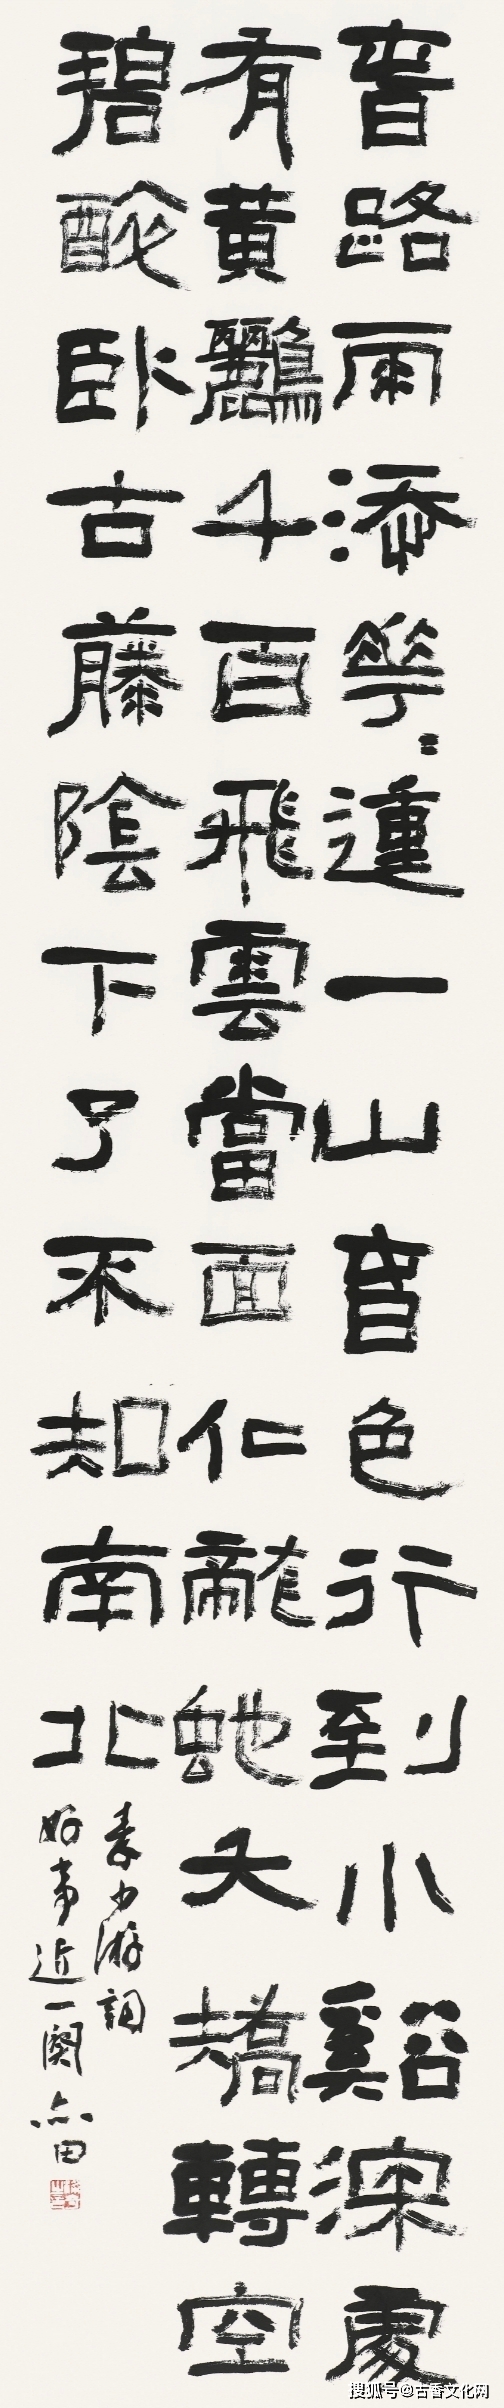 春路雨添花〻動一山春色行到小谿深處
有黃鸝千百飛雲當面化龍蛇夭矯轉空
碧醉臥古藤陰下了不知南北
秦少游詞
好事近一闋
搜狐号@古香文化网